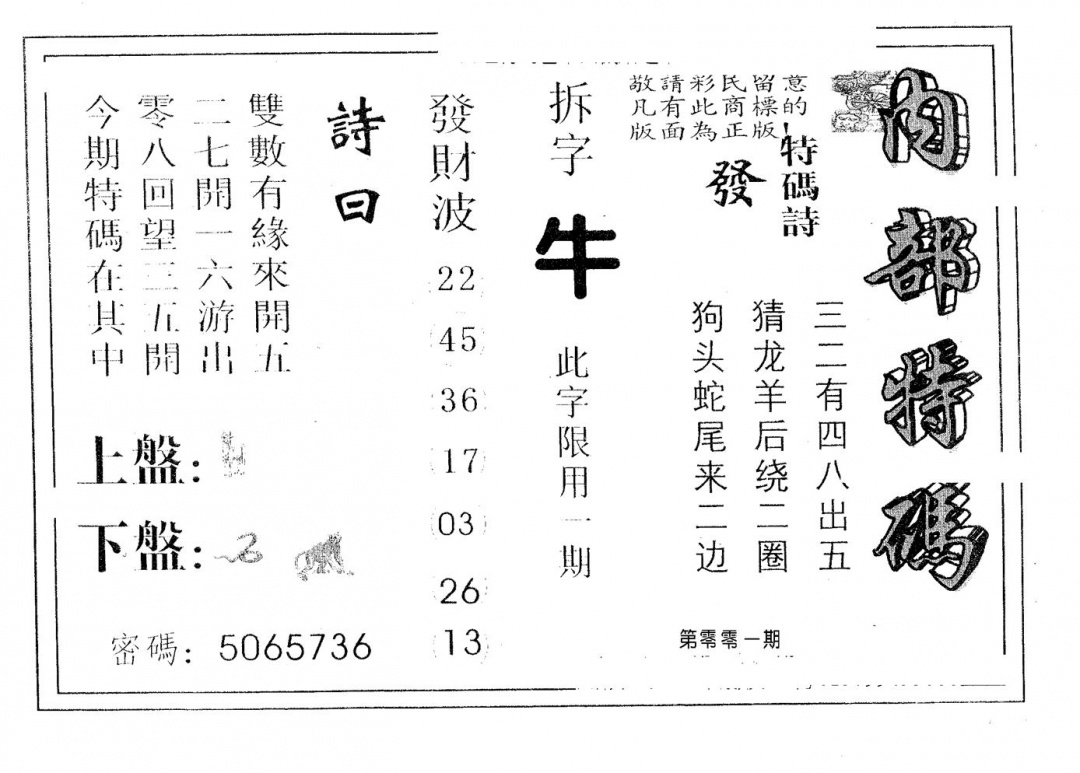 內部特碼
敬請彩民留意
凡有此商標的
版面為正版
特碼詩
發
三二有四八出五
猜龙羊后绕二圈
狗头蛇尾来二边
第零零一期
拆字
牛
此字限用一期
發財波
22
45
36
17
03
26
13
詩曰
雙數有緣來開五
二七開一六游出
零八回望三五開
今期特碼在其中
上盤:
下盤:
密碼: 5065736